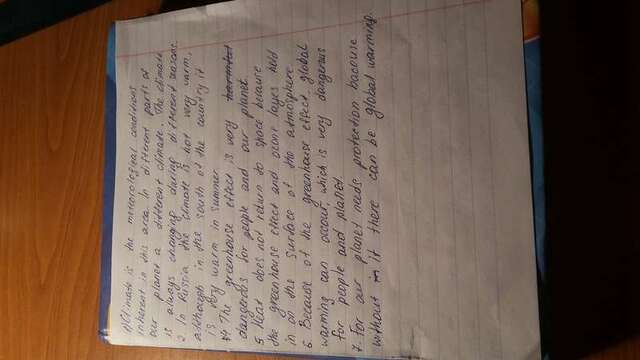 1) Climate is the meteorological conditions
inherent in this area. In different parts of
our planet a different climate. The climate
is always changing during different seasons.
2. In Russia the climate is not very warm,
although in the south of the country it
is very warm in summer
4 The greenhouse effect is very
dangerous for people and our planet.
5 Heat does not return to space because
the greenhouse effect and ozone layes held
in on the surface of the atmosphere
6. Because of the greenhouse effect, global
warming can occout, which is very dangerous
for people and planet.
7. For our planet needs protection because
without it there can be global warming.